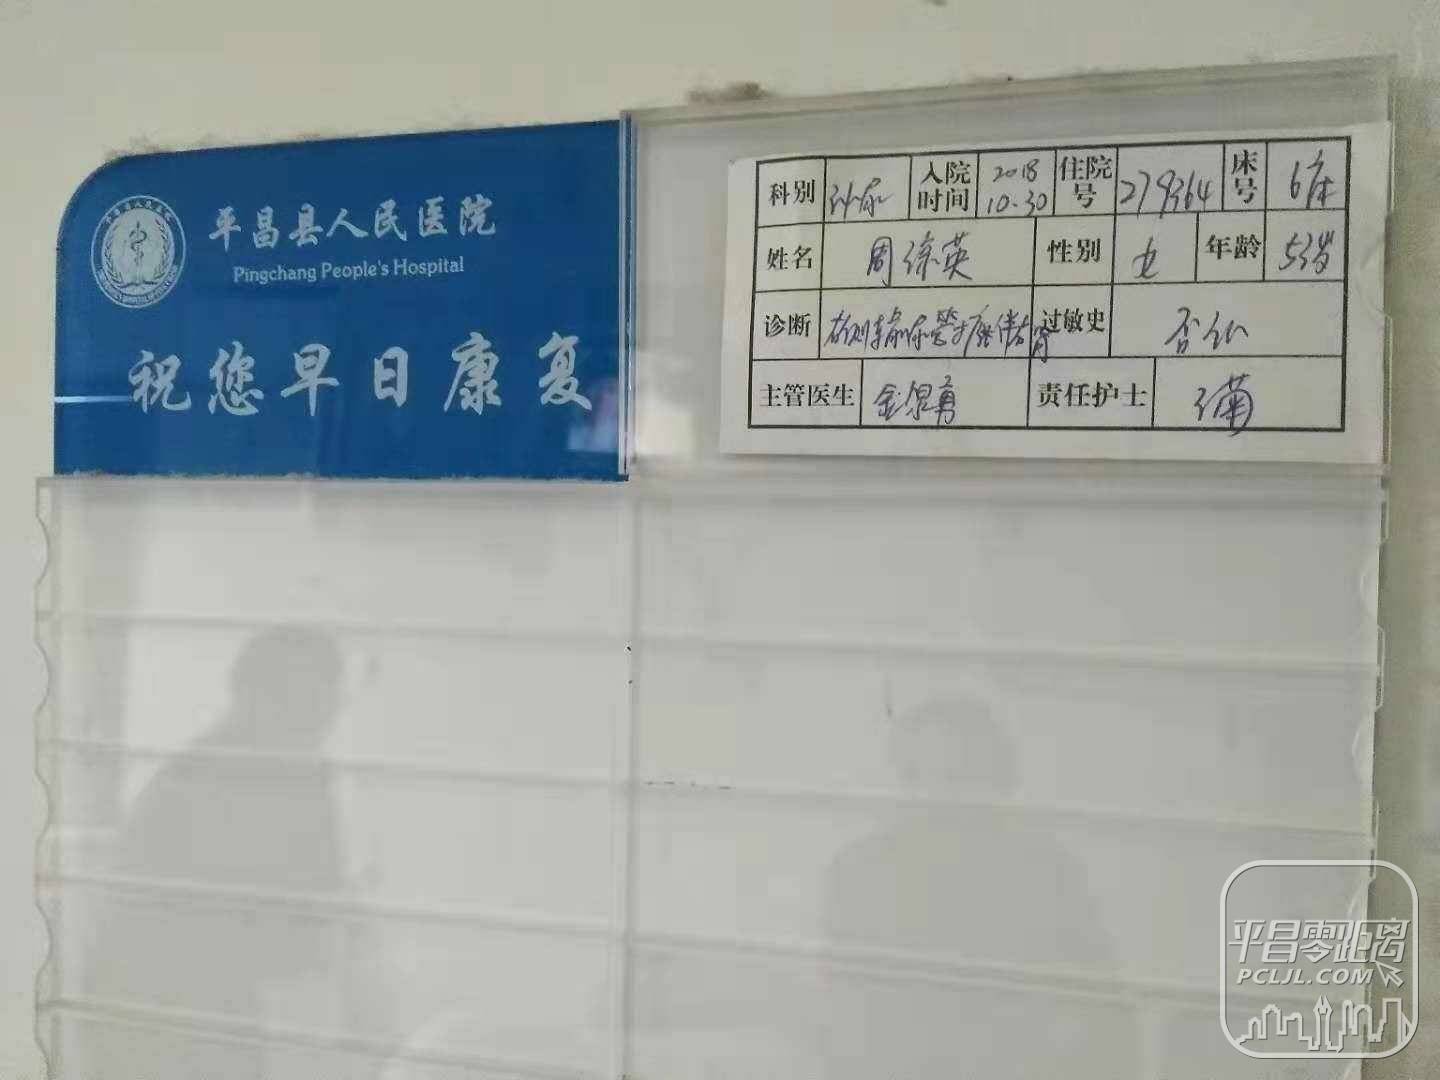 平昌县人民医院
Pingchang People's Hospital
祝您早日康复
科别 泌尿 入院时间 2018 10.30 住院号 279364 床号 6床
姓名 周琼英 性别 女 年龄 53岁
诊断 右侧输尿管 过敏史 否认
主管医生 责任护士
平昌零距离
PCLJL.COM